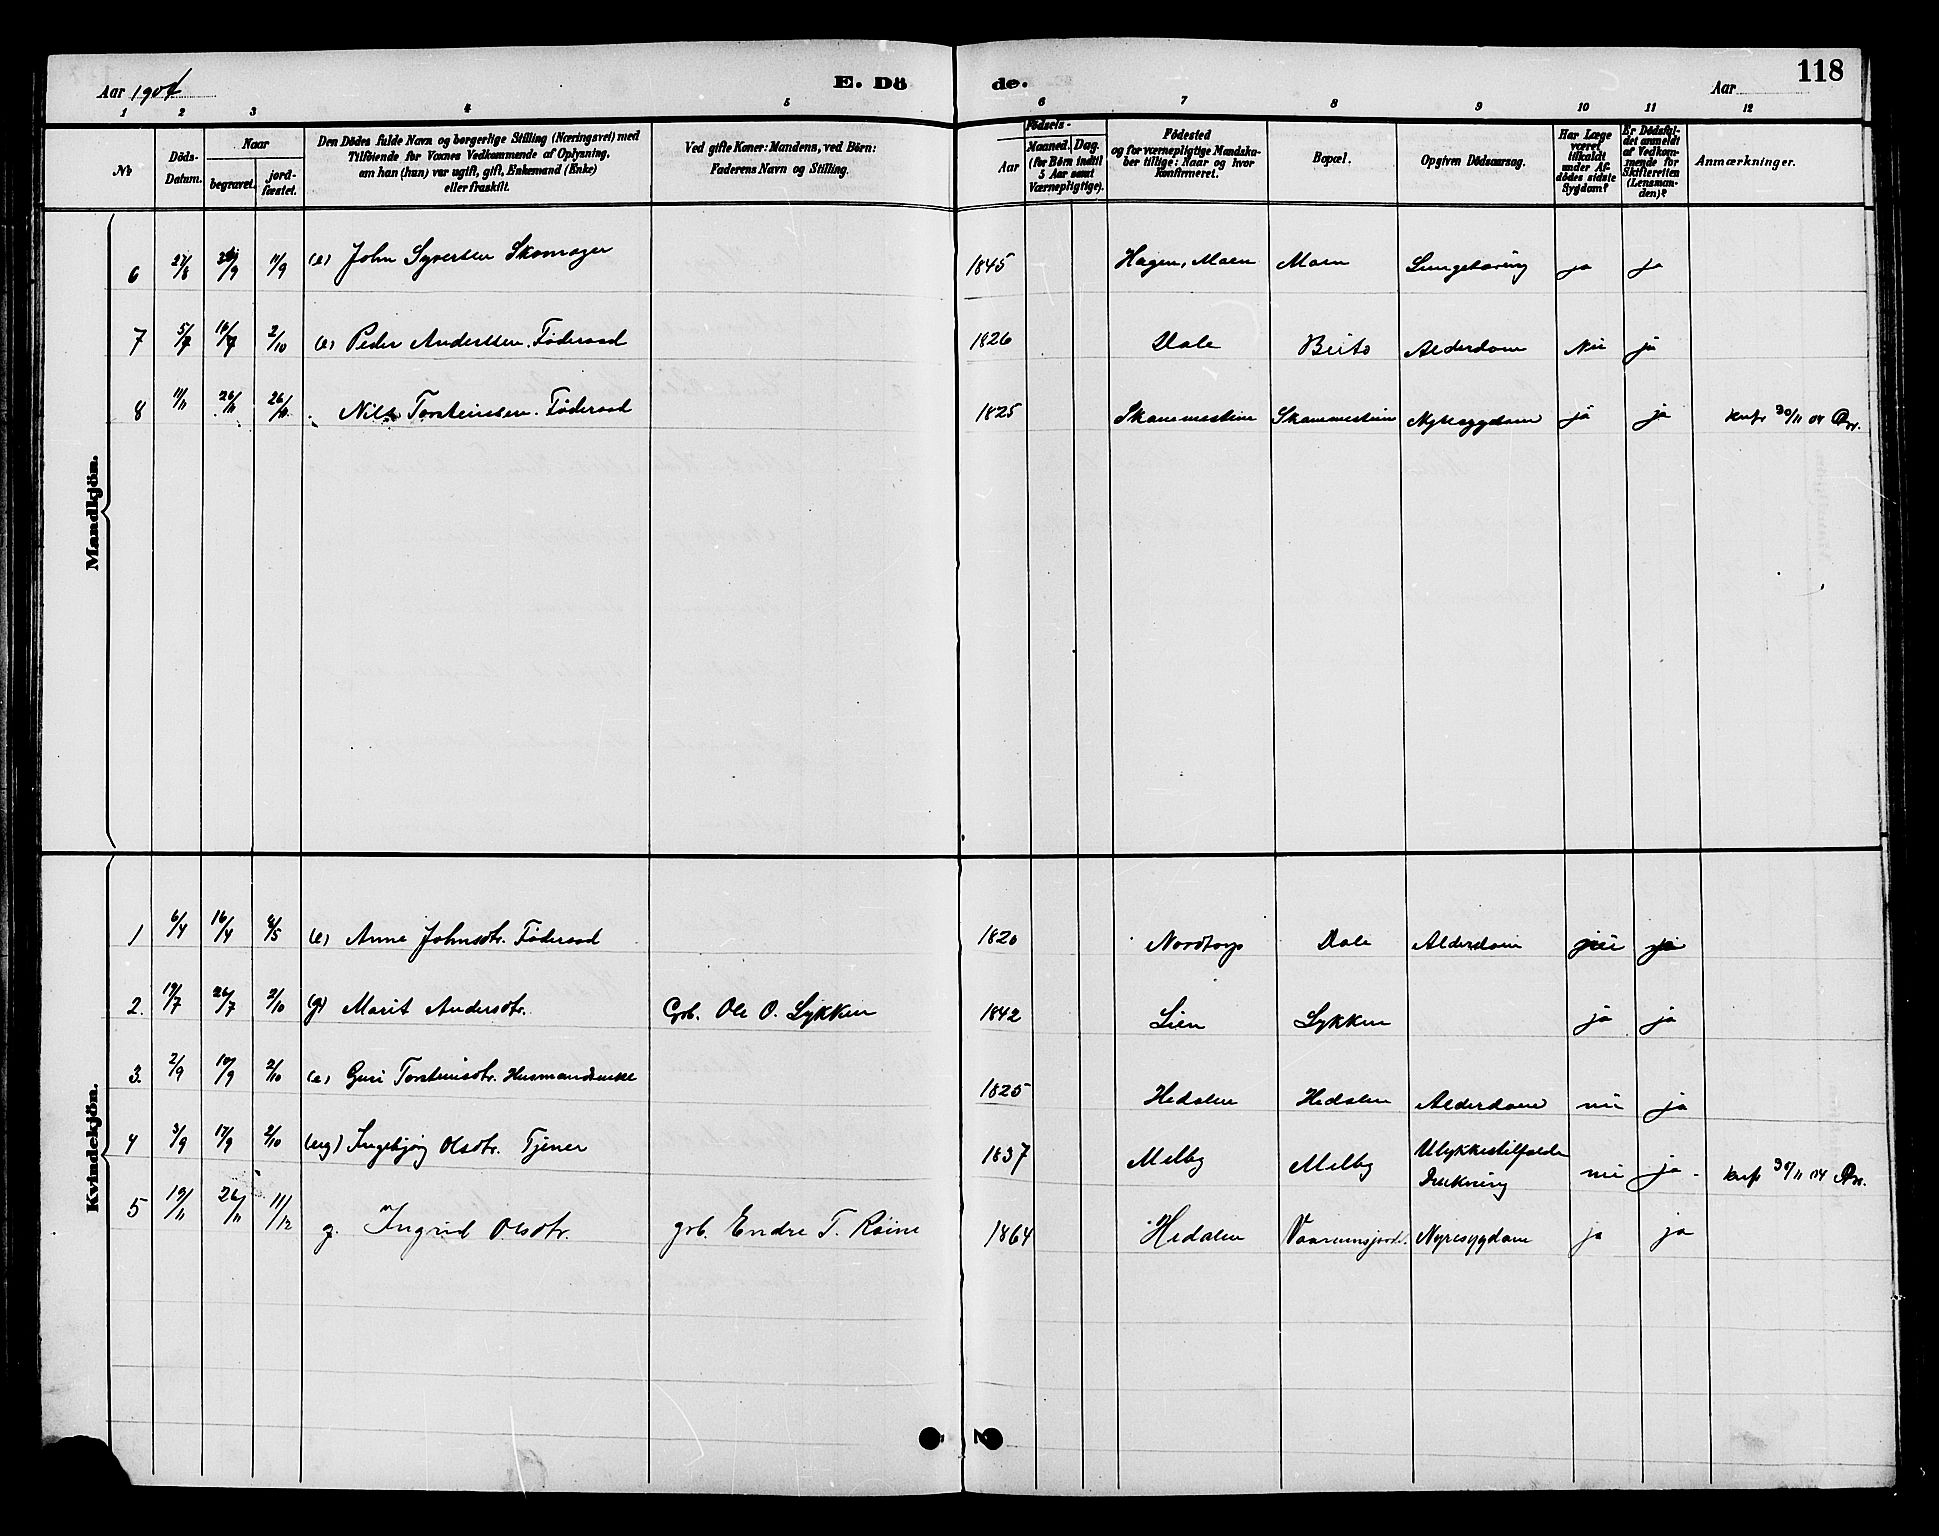 118
Aar 1904 E. Dö de. Aar
1 2 3 4 5 6 7 8 9 10 11 12
№
Döds-Datum.
Naar
begravet.
jord-fæstet.
Den Dödes fulde Navn og borgerlige Stilling (Næringsvei) med
Tilföiende for Voxnes Vedkommende af Oplysning,
om han (hun) var ugift, gift, Enkemand (Enke)
eller fraskilt.
Ved gifte Koner: Mandens, ved Börn:
Faderens Navn og Stilling.
Födsels-
Aar
Maaned. Dag.
(for Börn indtil
5 Aar samt
Værnepligtige).
Födested
og for værnepligtige Mandska-
ber tillige: Naar og hvor
Konfirmeret.
Bopæl.
Opgiven Dödsaarsag.
Har Læge
været
tilkaldt
under Af-
dödes sidste
Sygdom?
Er Dödsfal-
det anmeldt
af Vedkom-
mende for
Skifteretten
(Lensman-
den)?
Anmærkninger.
Mandkjön.
6 27/8 /9 11/9 (e) John Syversen Skomager 1845 Hagen, Moen Moen ja ja
7 5/7 16/7 2/10 (e) Peder Anderssen. Føderaad 1826 Dale Beito Alderdom Nei ja
8 11/11 26/11 26/11 Nils Torsteinsen. Føderaad 1825 Skammestein Skammestein Nyresygdom ja ja 30/11 04
Kvindekjön.
1 6/4 16/4 8/5 (e) Anne Johnsdtr. Føderaad 1820 Nordtorp Dale Alderdom nei ja
2. 19/7 26/7 2/10 (g) Marit Andersdtr. Grb. Ole O. Lykken 1842 Lien Lykken ja ja
3. 2/9 10/9 2/10 (e) Guri Torsteinsdtr. Husmandsenke 1825 Hedalen Hedalen Alderdom nei ja
4 3/9 17/9 2/10 (ug) Ingebjørg Olsdtr. Tjener 1837 Melby Melby Ulykkestilfælde
Drukning nei ja. 30/11 04
5 19/11 26/11 11/12 g. Ingrid Olsdtr. grb. Endre T. Røine 1864 Hedalen Nyresygdom ja ja